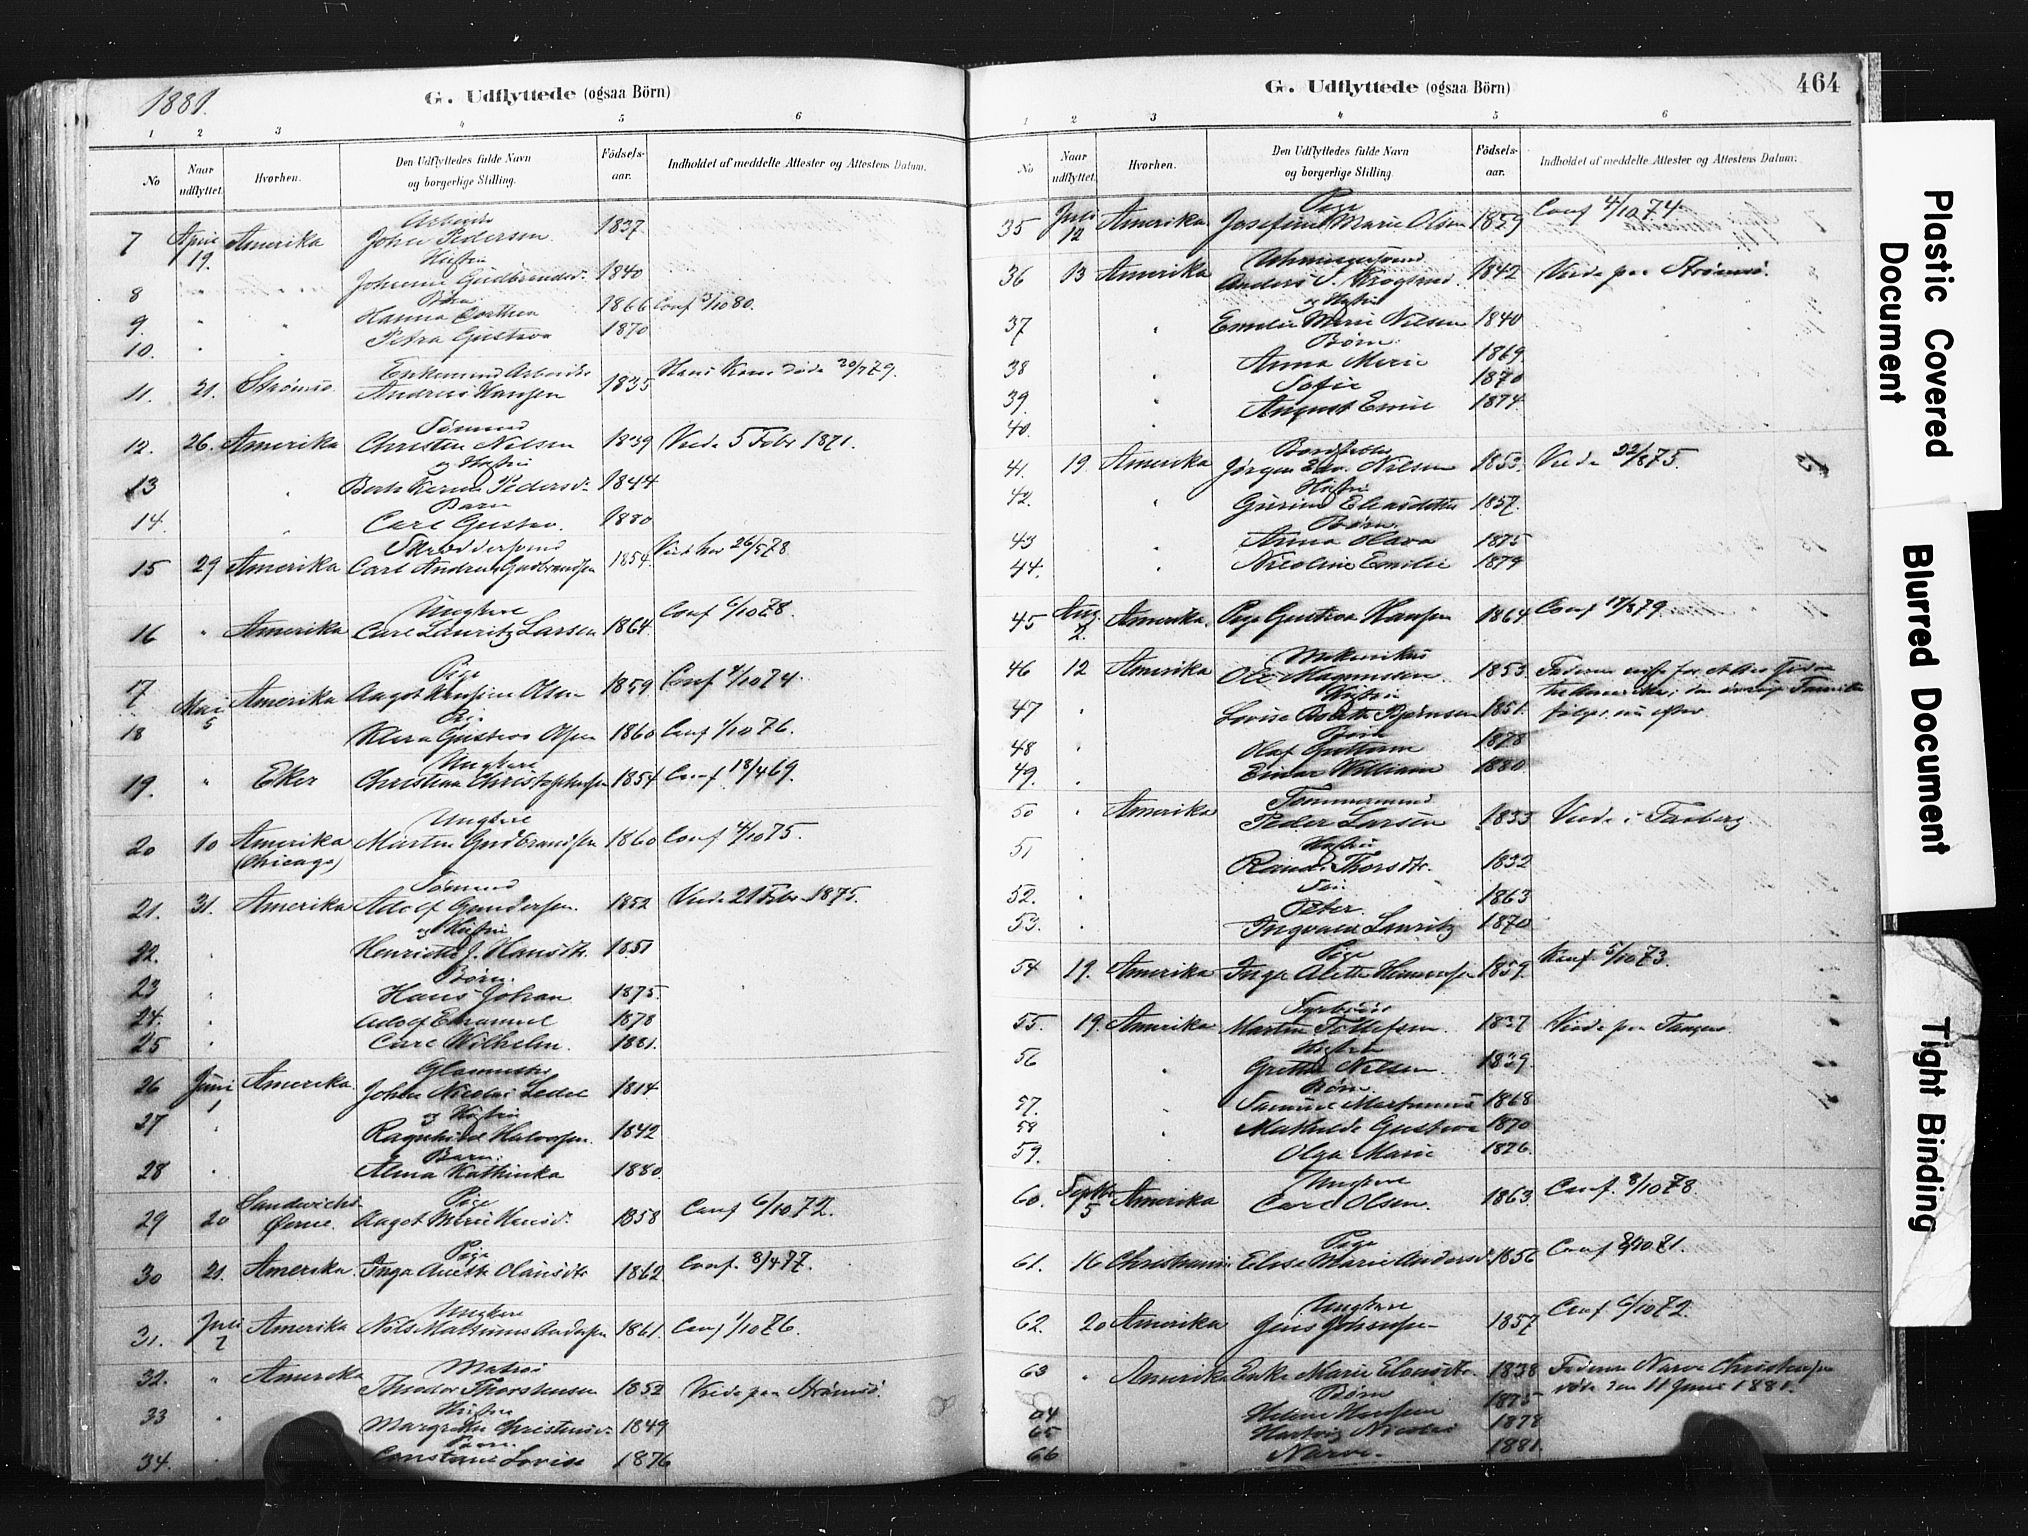 1881.
G. Udflyttede (ogsaa Börn)
1 2 3 4 5 6
No
Naar udflyttet.
Hvorhen.
Den Udflyttedes fulde Navn og borgerlige Stilling.
Födsels-aar.
Indholdet af meddelte Attester og Attestens Datum.
7 April 19. Amerika Johan Pedersen 1837
Hustru
8 " " 1840
Børn
9. " " Hanna 1866 Conf 3/10 80.
10. " " Petra Gustava 1870
11. 21. Strømsö. Enkemand Arbeider Andreas Hansen 1835 Hans Kone døde 30/7 79.
Sømand
12. 26. Amerika Christen Nilsen 1839 Viede 5 Febr 1871.
og Hustru
13 " Karine Pedersd. 1844
Barn
14. " Carl Gustav. 1880
Skræddersvend
15 29 Amerika Carl Andreas Gudbrandsen 1854. 26/5 78
Ungkarl
16 " Amerika Carl Lauritz Larsen 1864. Conf 6/10 78.
Pige
17 Mai 5 Amerika Aagot Olsen 1859. Conf 4/10 74.
18 Klara Gustava Olsen 1860 Conf 1/10 76.
19. " Eker Christian Christophersen 1854 Conf 18/4 69.
20 10 Amerika (Chicago) Martin Gudbrandsen 1860 Conf 4/10 75.
Sømand
21. 31. Amerika Adolf Gundersen. 1852 Viede 21 Febr. 1875.
og Hustru
22. " Henriette J. Hansdtr. 1851
Børn.
23 " Hans Johan 1875.
24. " Adolf Emanuel 1878
25 " Carl Wilhelm. 1881.
26 Juni 1 Amerika. Johan Nicolai 1814
og Hustru
27 " Ragnhild Halvorsen. 1842
Barn.
28 " Alma Kathinka 1880.
Pige
29 20 Sandwichs Øerne. Aagot Marie Hansd. 1858 Conf 6/10 72.
Pige
30 21. Amerika. Inga Clausdtr 1862 Conf. 8/4 77.
Ungkarl
31. Juli 7 Amerika Nils Andersen 1861. Conf 1/10 76.
Matros
32. " Amerika Theodor Thorstensen 1852 Viede paa Strømsö.
Hustru
33 " Margrethe Christensd. 1849
Barn.
34. " Constance Lovise 1876
G. Udflyttede (ogsaa Börn)
464
1 2 3 4 5 6
No
Naar udflyttet.
Hvorhen.
Den Udflyttedes fulde Navn og borgerlige Stilling.
Födsels-aar.
Indholdet af meddelte Attester og Attestens Datum.
Pige
35 Juli 12 Amerika. Josefine Marie Olsen 1859 Conf 4/10 74.
36 13 Amerika Anders 1842 Viede paa Strømsö.
og Hustru
37 " Emilie Marie Nilsen 1840
Børn.
38 " Anna Marie 1869
39. " Sofie 1870
40. August Emil 1874
41. 19 Amerika Jörgen Nilsen 1853. Viede 22/8 75.
Hustru
42. " 1857.
Børn.
43 " Anna 1875
44. " Nicoline Emilie 1879
45 Aug. 2. Amerika. Pige Gustava Hansen 1864 Conf 17/8 79.
46 12 Amerika Ole Magnussen. 1853.
Hustru
47 " Lovise Bjørnsen 1851. følger nu efter.
Børn
48 " Olaf 1878
49. " Einar William 1880
Tømmermand
50 " Amerika Peder Larsen 1833 Viede i
Hustru
51 . Thorsdtr. 1832
52. . Peter. 1863
53. . Ingvald Lauritz 1870
Pige
54 19. Amerika Inga 1859. Conf 5/10 73.
55. 19. Amerika. Martin Tollefsen. 1837 Viede paa Tangen.
Hustru
56 " Nilsen. 1839.
Børn.
57. . Samuel 1868
58 " Mathilde Gustava 1870
59. Olga Marie 1876.
Ungkarl
60. Septbr 5 Amerika Carl Olsen. 1863. Conf. 8/10 78.
Pige
61. 16 Christiania Elise Marie Andersd. 1856
Ungkarl
62. 20 Amerika 1857 Conf 6/10 72.
63 " Amerika Enke Marie 1838 Faderen Narve Christensen døde den 11 Juni 1881.
Børn
64 Helene Hansen 1875
65 Hartvig Nicolai 1878
66 Narve. 1881.
Plastic Covered Document
Blurred Document
Tight Binding